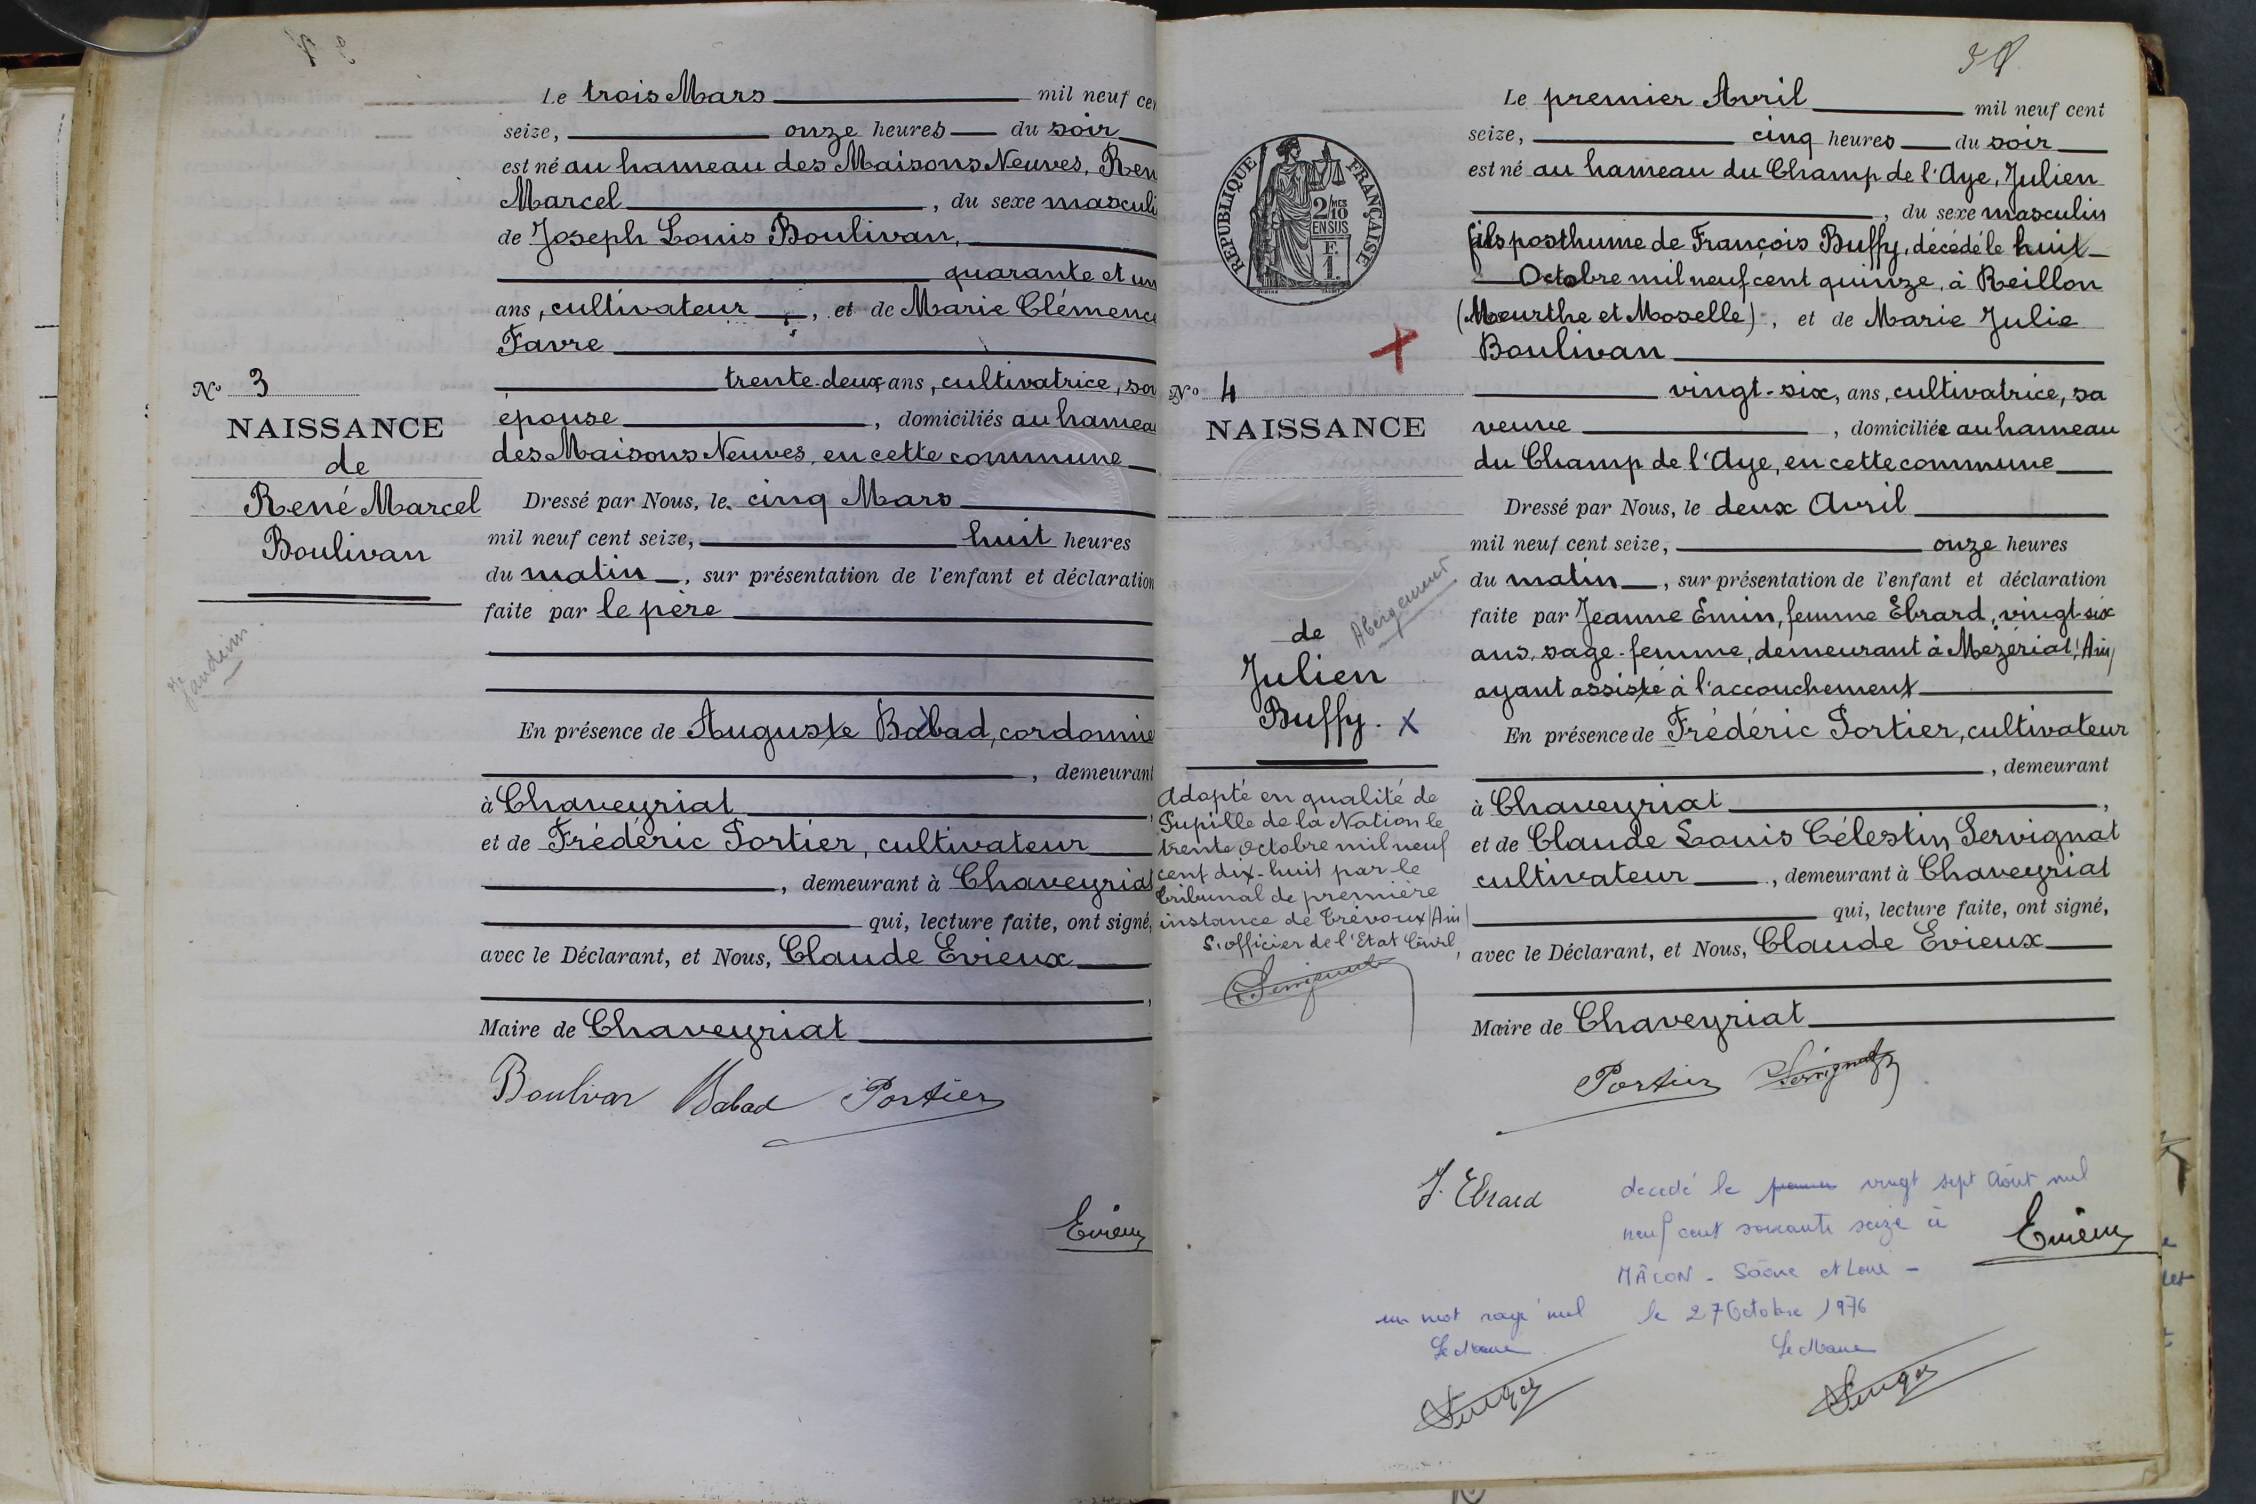 Le trois Mars mil neuf cen
seize, onze heures du soir
est né au hameau des Maisons Neuves, Ren
Marcel, du sexe masculi
de Joseph Louis Boulivan,
quarante et un
ans, cultivateur, et de Marie Clémence
Favre
trente-deux ans, cultivatrice, son
épouse, domiciliés au hameau
des Maisons Neuves, en cette commune
Dressé par Nous, le cinq Mars
mil neuf cent seize, huit heures
du matin, sur présentation de l'enfant et déclaration
faite par le père
En présence de Auguste Babad, cordonnie
, demeurant
à Chaveyriat,
et de Frédéric Portier, cultivateur
, demeurant à Chaveyriat
qui, lecture faite, ont signé,
avec le Déclarant, et Nous, Claude Evieux
,
Maire de Chaveyriat
Boulivan Babad Portier
Evieux
No 3
NAISSANCE
de
René Marcel
Boulivan
Le premier Avril mil neuf cent
seize, cinq heures du soir
est né au hameau du Champ de l'Aye, Julien
, du sexe masculin
fils posthume de François Buffy, décédé le huit
Octobre mil neuf cent quinze, à Reillon
(Meurthe et Moselle), et de Marie Julie
Boulivan
vingt-six, ans, cultivatrice, sa
veuve, domiciliée au hameau
du Champ de l'Aye, en cette commune
Dressé par Nous, le deux Avril
mil neuf cent seize, onze heures
du matin, sur présentation de l'enfant et déclaration
faite par Jeanne Emin, femme Ebrard, vingt-six
ans, sage-femme, demeurant à Mézériat (Ain)
ayant assisté à l'accouchement
En présence de Frédéric Portier, cultivateur
, demeurant
à Chaveyriat,
et de Claude Louis Célestin Servignat
cultivateur, demeurant à Chaveyriat
qui, lecture faite, ont signé,
avec le Déclarant, et Nous, Claude Evieux
Maire de Chaveyriat
Portier Servignat
J. Ebrard
Evieux
RÉPUBLIQUE FRANÇAISE
2/10 MES
EN SUS
F.
1.
No 4
NAISSANCE
Abergement
de
Julien
Buffy. X
Adopté en qualité de
Pupille de la Nation le
trente Octobre mil neuf
cent dix-huit par le
Tribunal de première
instance de Trévoux (Ain)
L'officier de l'Etat Civil,
Servignat
décédé le premier vingt sept Août mil
neuf cent soixante seize à
MÂCON - Saône et Loire -
le 27 Octobre 1976
Le Maire
un mot rayé nul
Le Maire